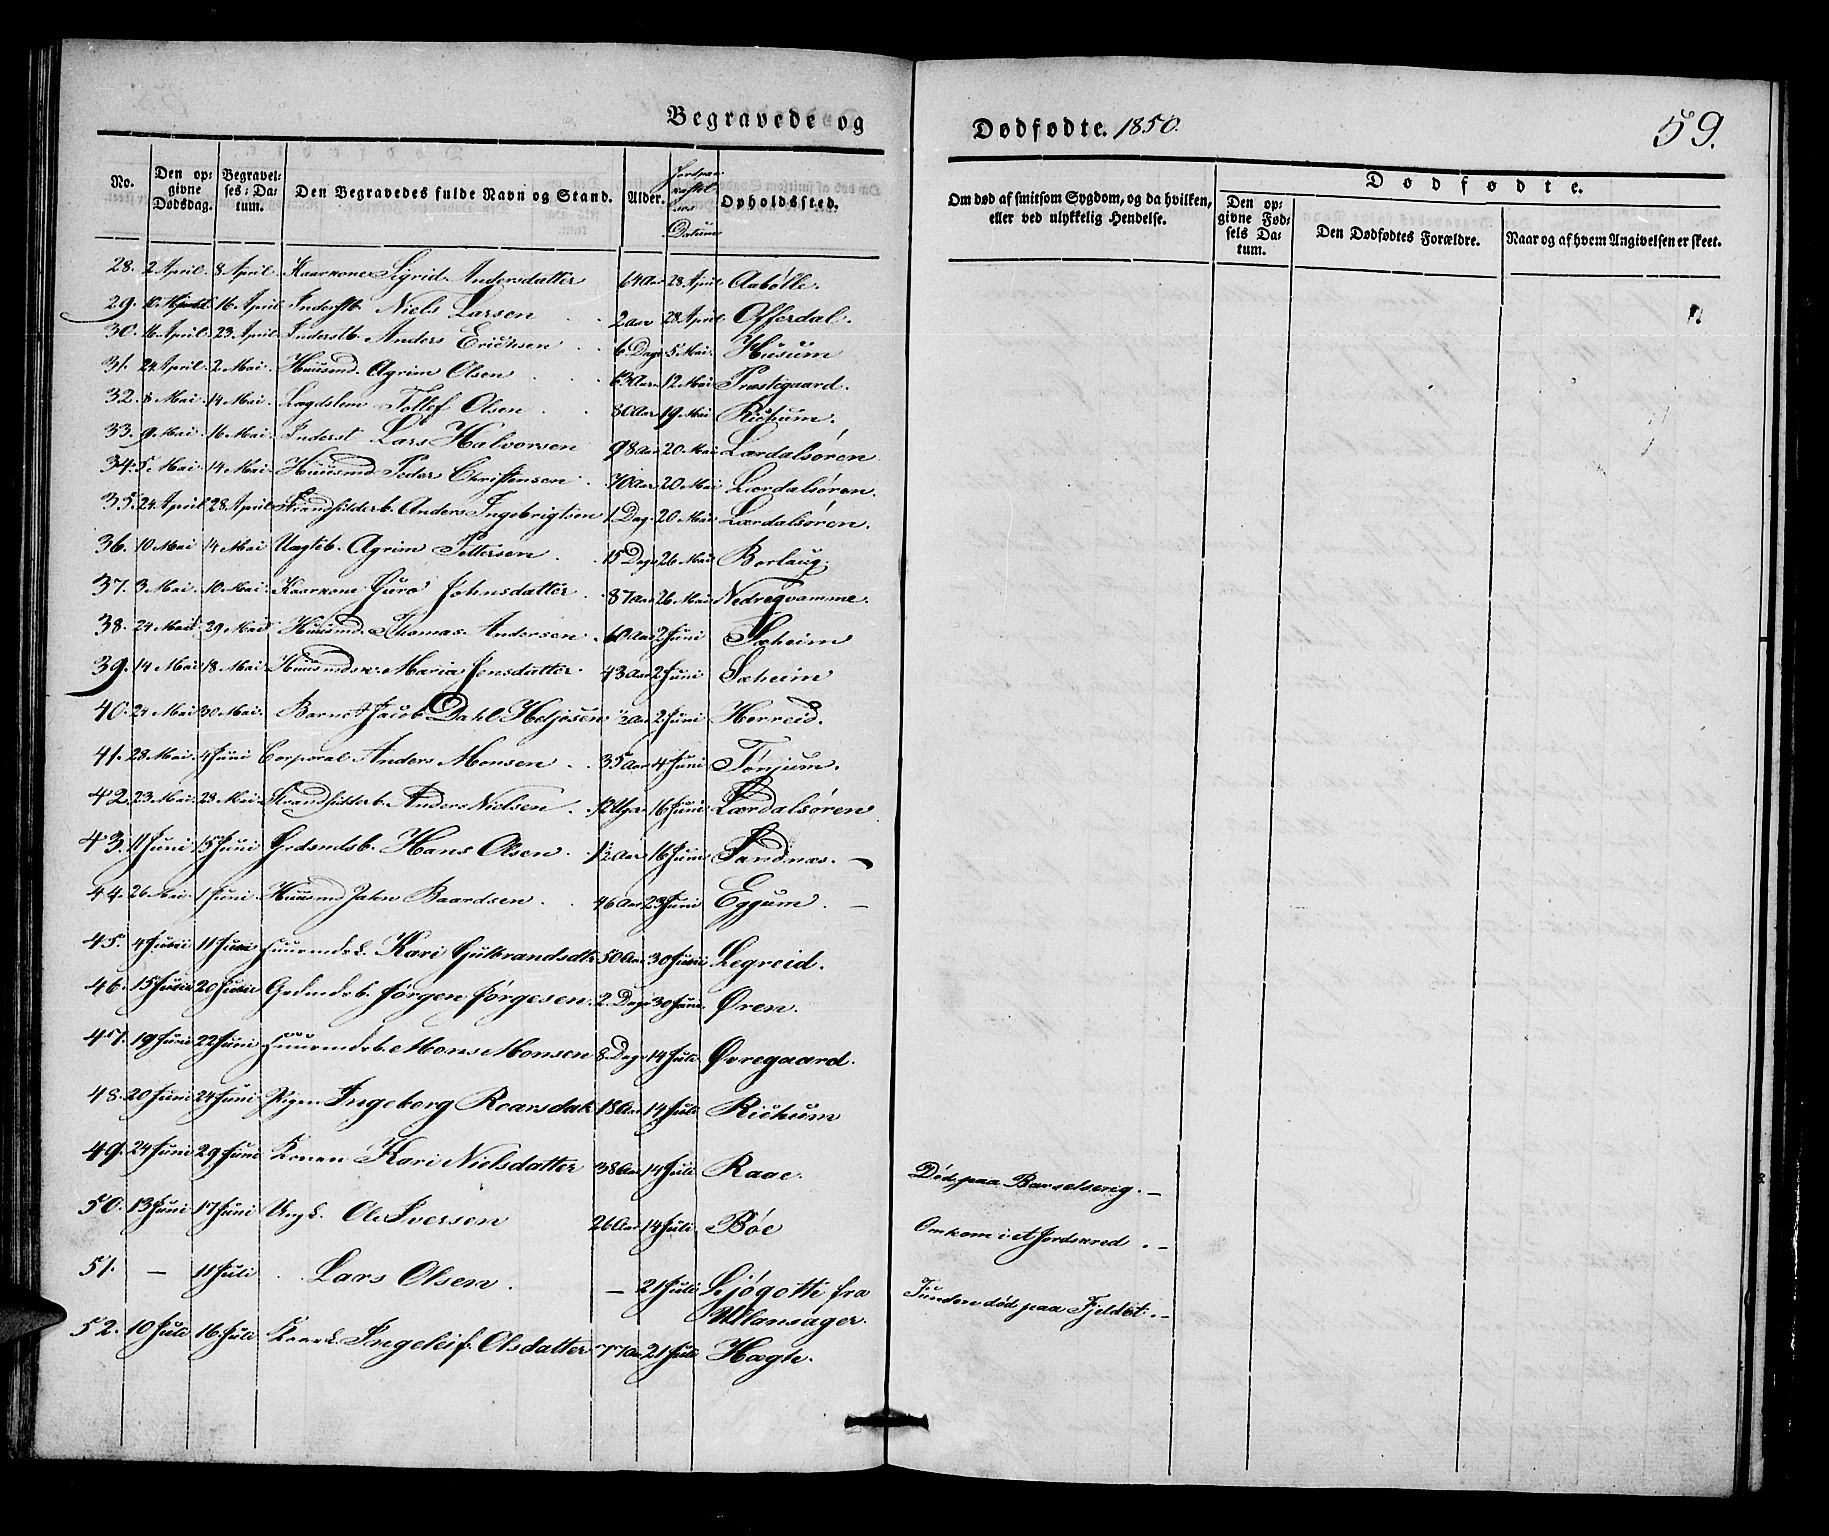 Begravede og
Dødfødte. 1850.
59.
No.
Den opgivne Dødsdag.
Begravelses-Datum.
Den Begravedes fulde Navn og Stand.
Alder.
Jordpaakastelses Datum
Opholdssted.
Om død af smitsom Sygdom, og da hvilken, eller ved ulykkelig Hendelse.
Dødfødte.
Den opgivne Fødsels Datum.
Den Dødfødtes Forældre.
Naar og af hvem Angivelsen er skeet.
28. 2 April. 8 April. Kaarkone Sigrid Andersdatter 64 Aar 28 April Aabølle.
29. 10 April 16 April Inderstb. Niels Larsen 2 aar 28 April Offerdal.
30. 16 April. 23 April Inderstb. Anders Erichsen 6 Dage 5 Mai. Husum
31. 24 April 2 Mai. Huusmd. Agrim Olsen 63 Aar 12 Mai Præstegaard.
32. 8 Mai 14 Mai. Lægdslem Tollef Olsen 80 Aar 19 Mai Richum.
33. 9 Mai 16 Mai. Inderst Lars Halvorsen 98 Aar 20 Mai Lærdalsøren
34. 5 Mai 14 Mai. Huusmd Peder Christensen 70 Aar 20 Mai Lærdalsøren.
35. 24 April 28 April Strandsidderb. Anders Ingebrigtsen 1 Dag. 20 Mai Lærdalsøren.
36. 10 Mai 14 Mai Uægteb. Agrim Pettersen 15 Dage 26 Mai Borlaug.
37. 3 Mai 10 Mai. Kaarkone Guro Johnsdatter 87 Aar 26 Mai Nedreqvamme.
38. 24 Mai 29 Mai Huusmd. Thomas Andersen 60 Aar 2 Juni Sæheim
39. 14 Mai 18 Mai Huusmdsk. Maria Jensdatter 43 Aar 2 Juni Sæheim
40. 24 Mai 30 Mai. Barnet Jacob Dahl Heljesen Aar 2 Juni Herreid.
41. 28 Mai. 4 Juni Corporal Anders Monsen 35 Aar 4 Juni Tønjum.
42. 23 Mai. 28 Mai. Strandsidderb. Anders Nielsen. 12 Uger 16 Juni Lærdalsøren
43. 11 Juni 15 Juni Grdmdsb. Hans Olsen. 1½ Aar 16 Juni Sandnæs. —
44. 26 Mai 1 Juni Huusmd John Baardsen. 46 Aar 23 Juni Eggum. —
45. 4 Juni 11 Juni Huusmdsk. Kari Gulbrandsdtr 50 Aar 30 Juni Legreid.
46. 15 Juni 20 Juni Grdmdsb. Jørgen Jørgesen. 2. Dage 30 Juni. Øren.
47. 19 Juni 22 Juni Huusmdsb. Mons Monsen 8 Dage 14 Juli Øvregaard.
48. 20 Juni 24 Juni Pigen Ingeborg Roarsdatt 18 Aar 14 Juli Richum
49. 24 Juni 29 Juni Konen Kari Nielsdatter 38 Aar 14 Juli Raae. Død paa Barselseng. —
50. 13 Juni 17 Juni Ungk. Ole Iversen 26 Aar 14 Juli. Bøe Omkom i et Jordskred. —
51. — 11 Juli. Lars Olsen. — 21 Juli Ljøgotti fra Ullensager. Funden død paa Fjeldet. —
52. 10 Juli 16 Juli Kaark. Ingeleif Olsdatter 77 Aar 21 Juli Hægte.